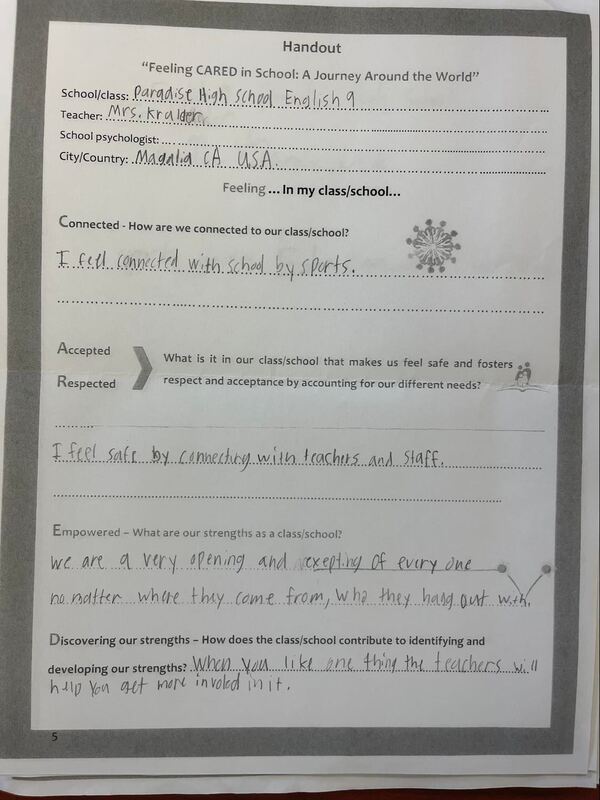 Handout
"Feeling CARED in School: A Journey Around the World"
School/class: Paradise High School English 9
Teacher: Mrs. Kralder
School psychologist:
City/Country: Magalia CA USA.
Feeling ... In my class/school...
Connected - How are we connected to our class/school?
I feel connected with school by sports.
Accepted
Respected
What is it in our class/school that makes us feel safe and fosters
respect and acceptance by accounting for our different needs?
I feel safe by connecting with teachers and staff.
Empowered – What are our strengths as a class/school?
we are a very opening and exepting of every one
no matter where they come from, who they hang out with.
Discovering our strengths – How does the class/school contribute to identifying and
developing our strengths? When you like one thing the teachers will
help you get more involed in it.
5